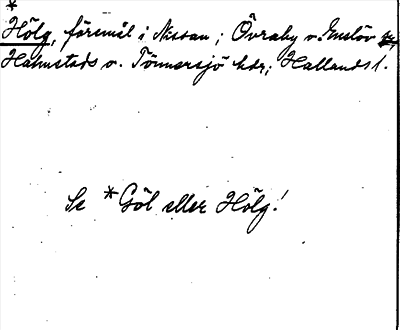 *
Hölg, föremål i Nissan; Övraby o. Enslöv
Halmstads o. Tönnersjö hdr; Hallands l.
Se *Göl eller Hölg!